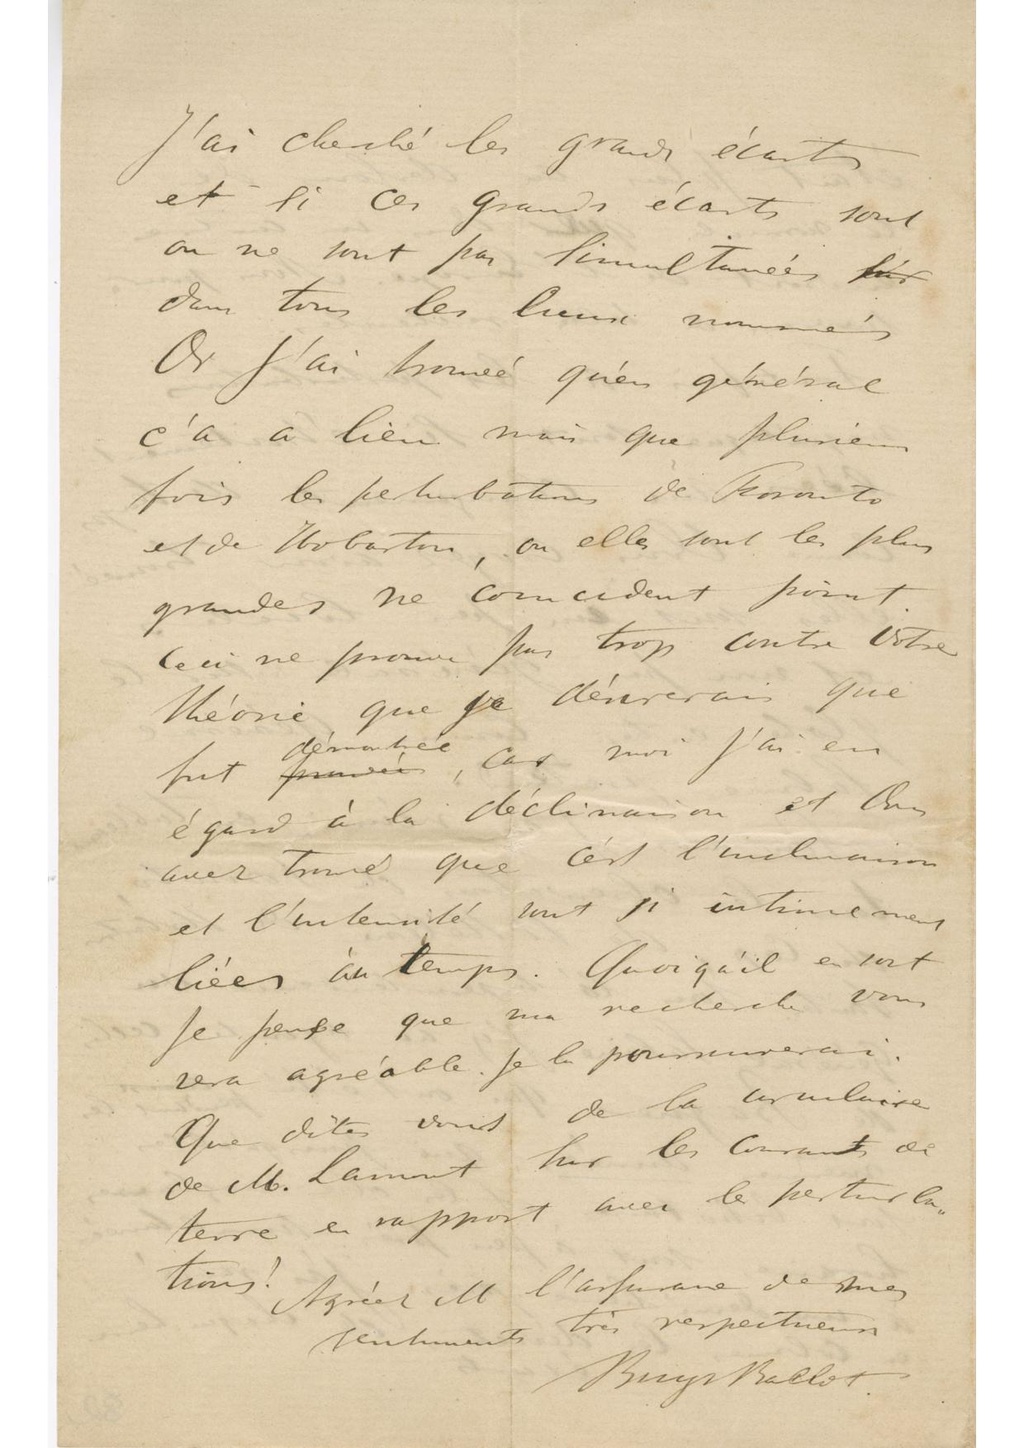 J'ai cherché les grands écarts
et si ces grands écarts sont
ou ne sont pas simultanées sur
dans tous les lieux nommés
Or j'ai trouvé qu'en général
c'a a lieu mais que plusieurs
fois les perturbations de Toronto
et de Hobarton, ou elles sont les plus
grandes ne coincident point.
Ceci ne prouve pas trop contre Votre
théorie que je désirerais que
fut prouvée démontrée, car moi j'ai eu
égard à la déclinaison et Vous
avez trouvé que c'est l'inclinaison
et l'intensité sont si intimement
liées au temps. Quoiqu'il en soit
Je pense que ma recherche vous
sera agréable. Je la poursuiverai.
Que dites vous de la circulaire
de M. Lamont sur les courants de
terre en rapport avec le perturba„
tions!
Agréez M l'assurance de mes
sentiments très respectueux
Buys Ballot.